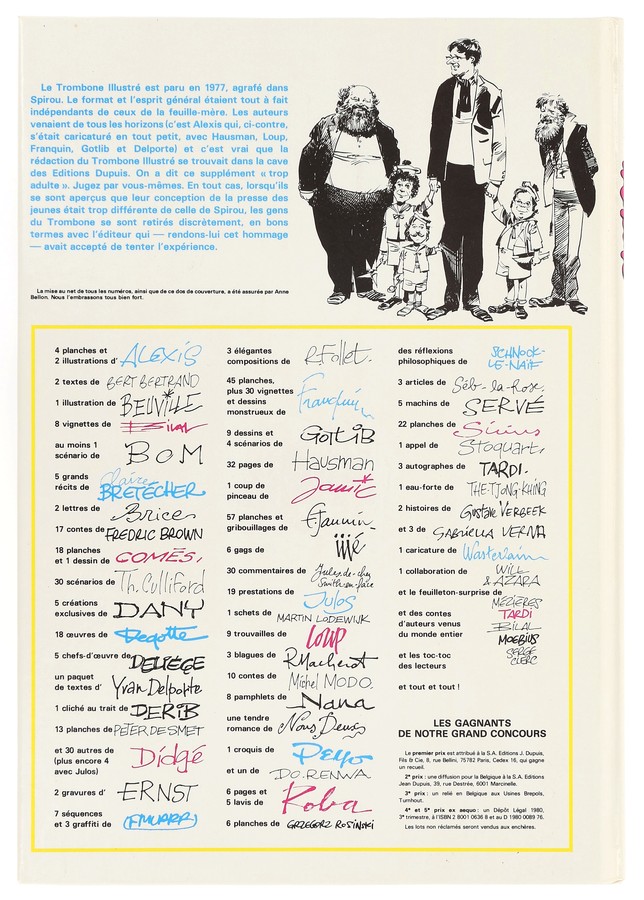 Le Trombone Illustré est paru en 1977, agrafé dans
Spirou. Le format et l'esprit général étaient tout à fait
indépendants de ceux de la feuille-mère. Les auteurs
venaient de tous les horizons (c'est Alexis qui, ci-contre,
s'était caricaturé en tout petit, avec Hausman, Loup,
Franquin, Gotlib et Delporte) et c'est vrai que la
rédaction du Trombone Illustré se trouvait dans la cave
des Editions Dupuis. On a dit ce supplément « trop
adulte ». Jugez par vous-mêmes. En tout cas, lorsqu'ils
se sont aperçus que leur conception de la presse des
jeunes était trop différente de celle de Spirou, les gens
du Trombone se sont retirés discrètement, en bons
termes avec l'éditeur qui — rendons-lui cet hommage
— avait accepté de tenter l'expérience.
La mise au net de tous les numéros, ainsi que de ce dos de couverture, a été assurée par Anne
Bellon. Nous l'embrassons tous bien fort.
4 planches et
2 illustrations d' ALEXIS
2 textes de BERT BERTRAND
1 illustration de BEUVILLE
8 vignettes de BILAL
au moins 1
scénario de BOM
5 grands
récits de Claire BRETÉCHER
2 lettres de Brice
17 contes de FREDRIC BROWN
18 planches
et 1 dessin de COMÈS.
30 scénarios de Th. Culliford
5 créations
exclusives de DANY
18 œuvres de Degotte
5 chefs-d'œuvre de DELIÈGE
un paquet
de textes d' Yvan Delporte
1 cliché au trait de DERIB
13 planches de PETER DE SMET
et 30 autres de
(plus encore 4
avec Julos) Didgé
2 gravures d' ERNST
7 séquences
et 3 graffiti de (FMURRR)
3 élégantes
compositions de R. Follet.
45 planches,
plus 30 vignettes
et dessins
monstrueux de Franquin
9 dessins et
4 scénarios de GOTLIB
32 pages de Hausman
1 coup de
pinceau de Jannin
57 planches et
gribouillages de F. Jannin
6 gags de Jijé
30 commentaires de Jules de-chez
Smith-en-face
19 prestations de Julos
1 schets de MARTIN LODEWIJK
9 trouvailles de LOUP
3 blagues de R. Macherot
10 contes de Michel MODO.
8 pamphlets de Nana
une tendre
romance de Nous Deux
1 croquis de Peyo
et un de DO. RENWA
6 pages et
5 lavis de Roba
6 planches de GRZEGORZ ROSINSKI
des réflexions
philosophiques de SCHNOCK-
LE-NAÏF
3 articles de Séb-la-Rose.
5 machins de SERVÉ
22 planches de Sirius
1 appel de Stoquart.
3 autographes de TARDI.
1 eau-forte de THE-TJONG-KHING
2 histoires de Gustave VERBEEK
et 3 de GABRIELLA VERNA
1 caricature de Wasterlain
1 collaboration de WILL
& AZARA
et le feuilleton-surprise de
MÉZIÈRES
et des contes
d'auteurs venus
du monde entier
TARDI
BILAL
MOEBIUS
SERGE
CLERC
et les toc-toc
des lecteurs
et tout et tout !
LES GAGNANTS
DE NOTRE GRAND CONCOURS
Le premier prix est attribué à la S.A. Editions J. Dupuis,
Fils & Cie, 8, rue Bellini, 75782 Paris, Cedex 16, qui gagne
un recueil.
2e prix : une diffusion pour la Belgique à la S.A. Editions
Jean Dupuis, 39, rue Destrée, 6001 Marcinelle.
3e prix : un relié en Belgique aux Usines Brepols,
Turnhout.
4e et 5e prix ex aequo : un Dépôt Légal 1980,
3e trimestre, à l'ISBN 2 8001 0636 8 et au D 1980 0089 76.
Les lots non réclamés seront vendus aux enchères.